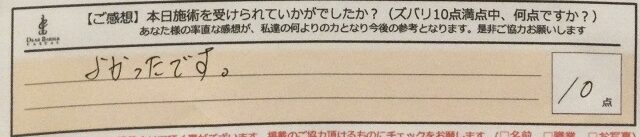 【ご感想】本日施術を受けられていかがでしたか？（ズバリ10点満点中、何点ですか？）
あなた様の率直な感想が、私達の何よりの力となり今後の参考となります。是非ご協力お願いします
よかったです。
10
点
掲載のご協力頂けるものにチェックをお願いします。（□名前